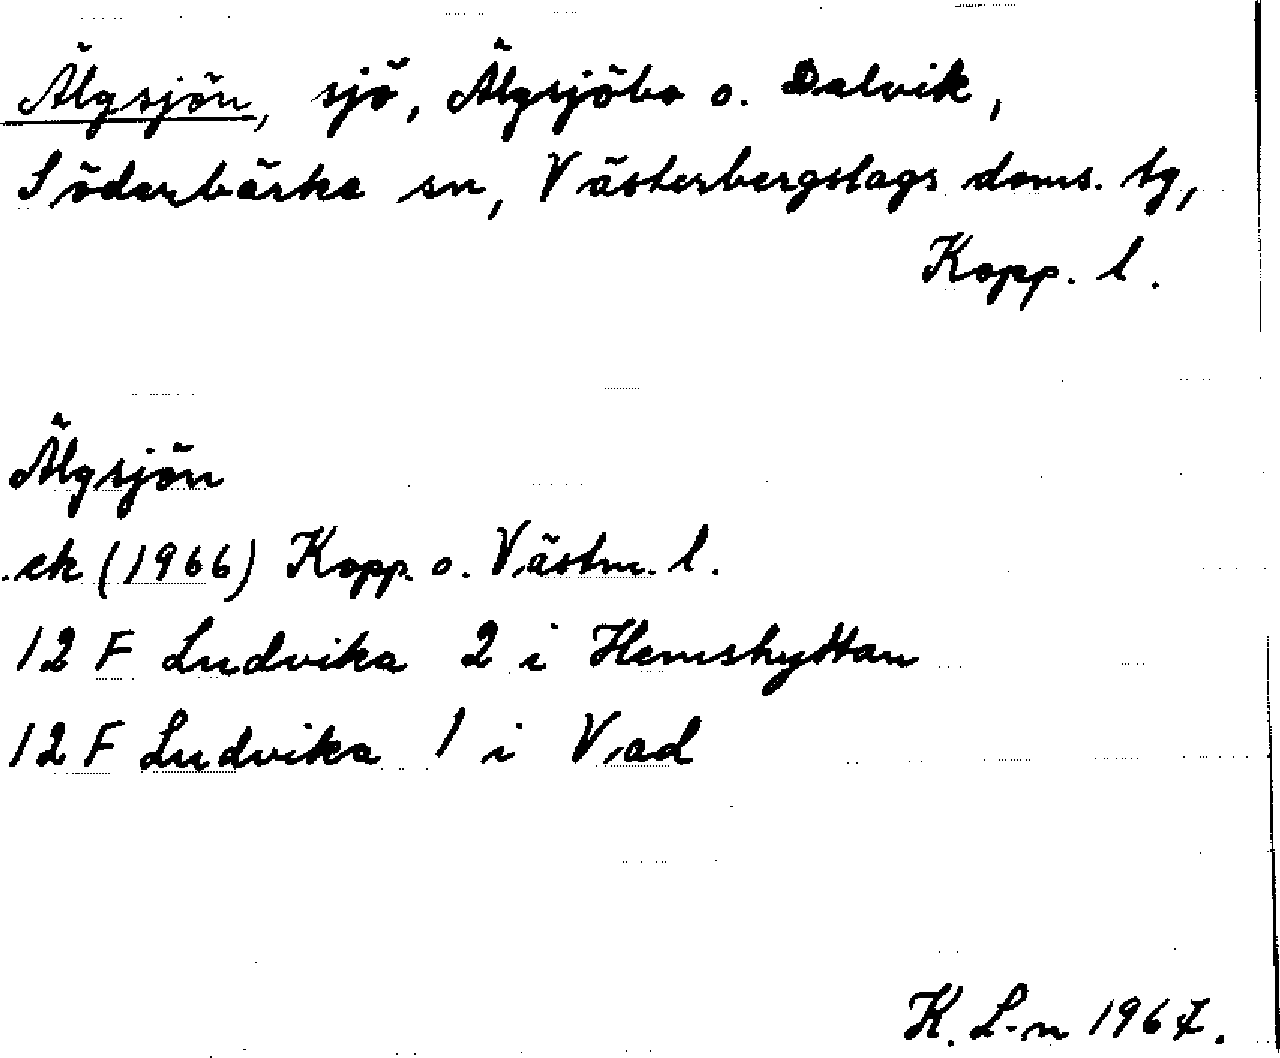 Älgsjön, sjö, Älgsjöbo o. Dalvik,
Söderbärke sn, Västerbergslags doms. tg,
Kopp. l.
Älgsjön
ek (1966) Kopp. o. Västm. l.
12 F Ludvika 2 i Hemshyttan
12 F Ludvika 1 i Vad
K. L-n 1967.